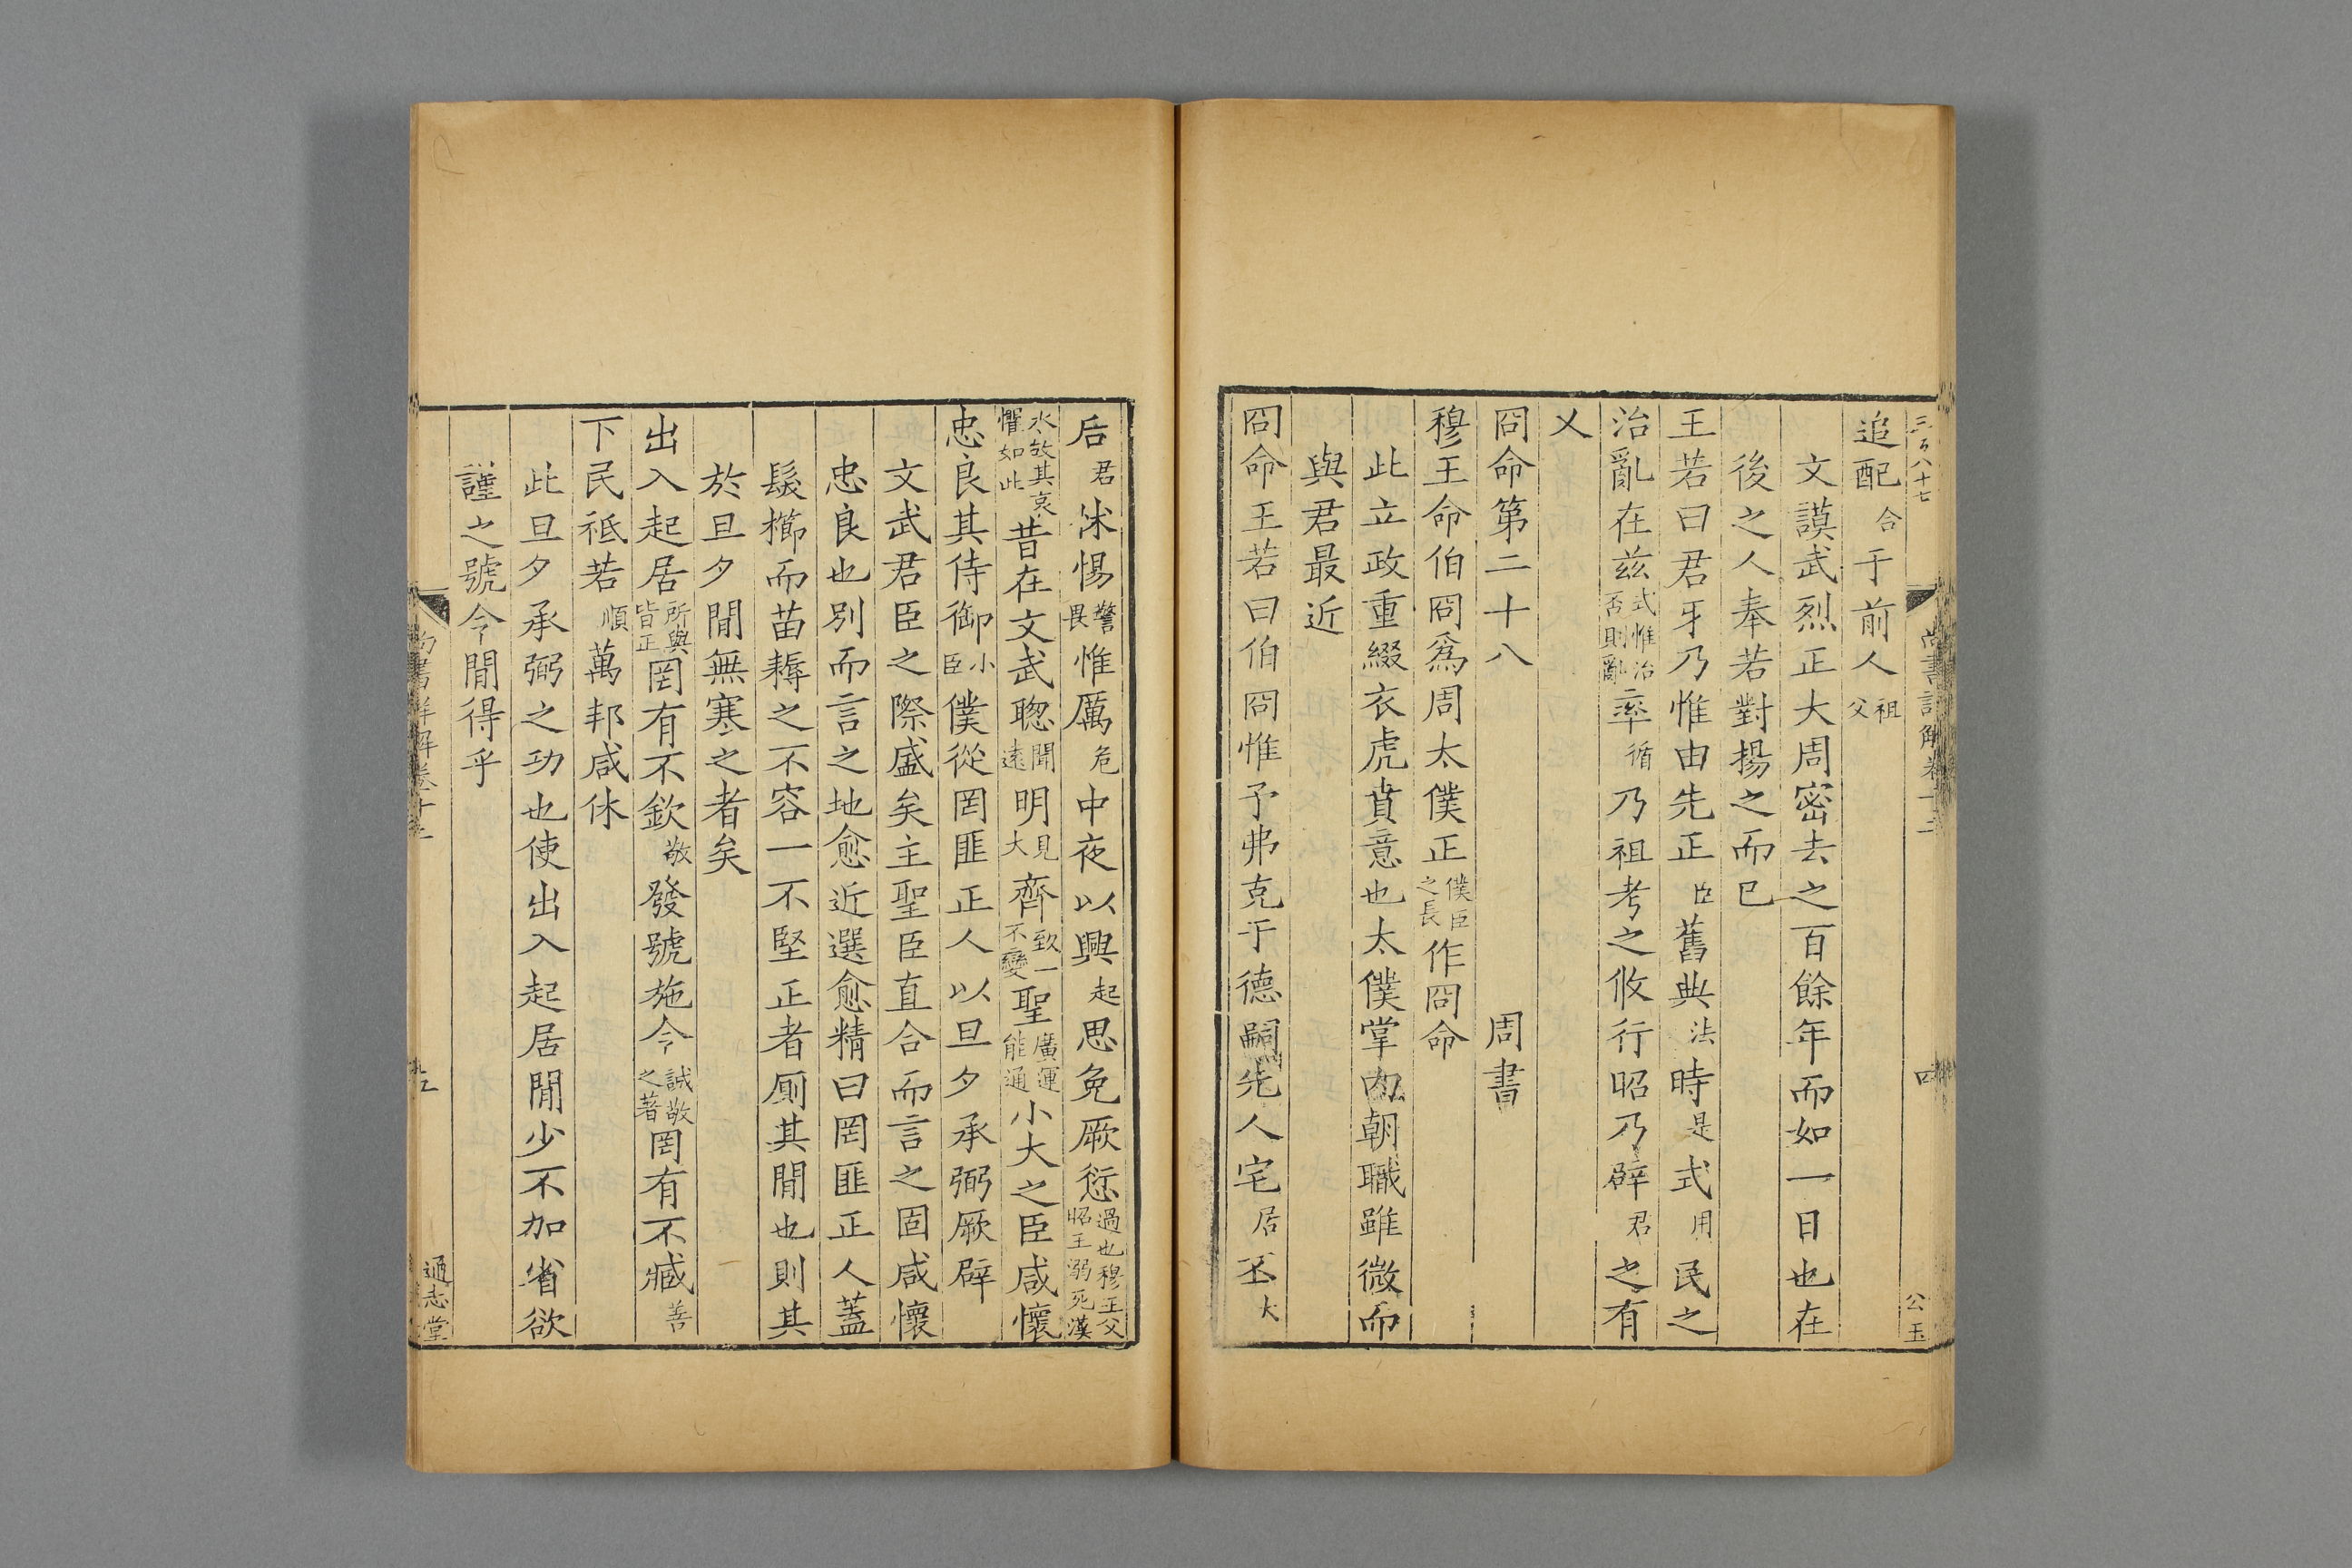 三百八十七
尚書詳解卷十二
四
公玉
追配合于前人祖父
文謨武烈正大周密去之百餘年而如一日也在
後之人奉若對揚之而已
王若曰君牙乃惟由先正臣舊典法時是式用民之
治亂在茲式惟治否則亂率循乃祖考之攸行昭乃辟君之有
乂
冏命第二十八 周書
穆王命伯冏爲周太僕正僕臣之長作冏命
此立政重綴衣虎賁意也太僕掌內朝職雖微而
與君最近
冏命王若曰伯冏惟予弗克于德嗣先人宅居丕大
后君怵惕警畏惟厲危中夜以興起思免厥愆過也穆王父昭王溺死漢
水故其哀懼如此昔在文武聰聞遠明見大齊致一不變聖廣運能通小大之臣咸懷
忠良其侍御小臣僕從罔匪正人以旦夕承弼厥辟
文武君臣之際盛矣主聖臣直合而言之固咸懷
忠良也別而言之地愈近選愈精曰罔匪正人蓋
髮櫛而苗耨之不容一不堅正者厠其閒也則其
於旦夕閒無寒之者矣
出入起居所與皆正罔有不欽敬發號施令誠敬之著罔有不臧善
下民祗若順萬邦咸休
此旦夕承弼之功也使出入起居閒少不加省欲
謹之號令閒得乎
尚書詳解卷十二
五
通志堂